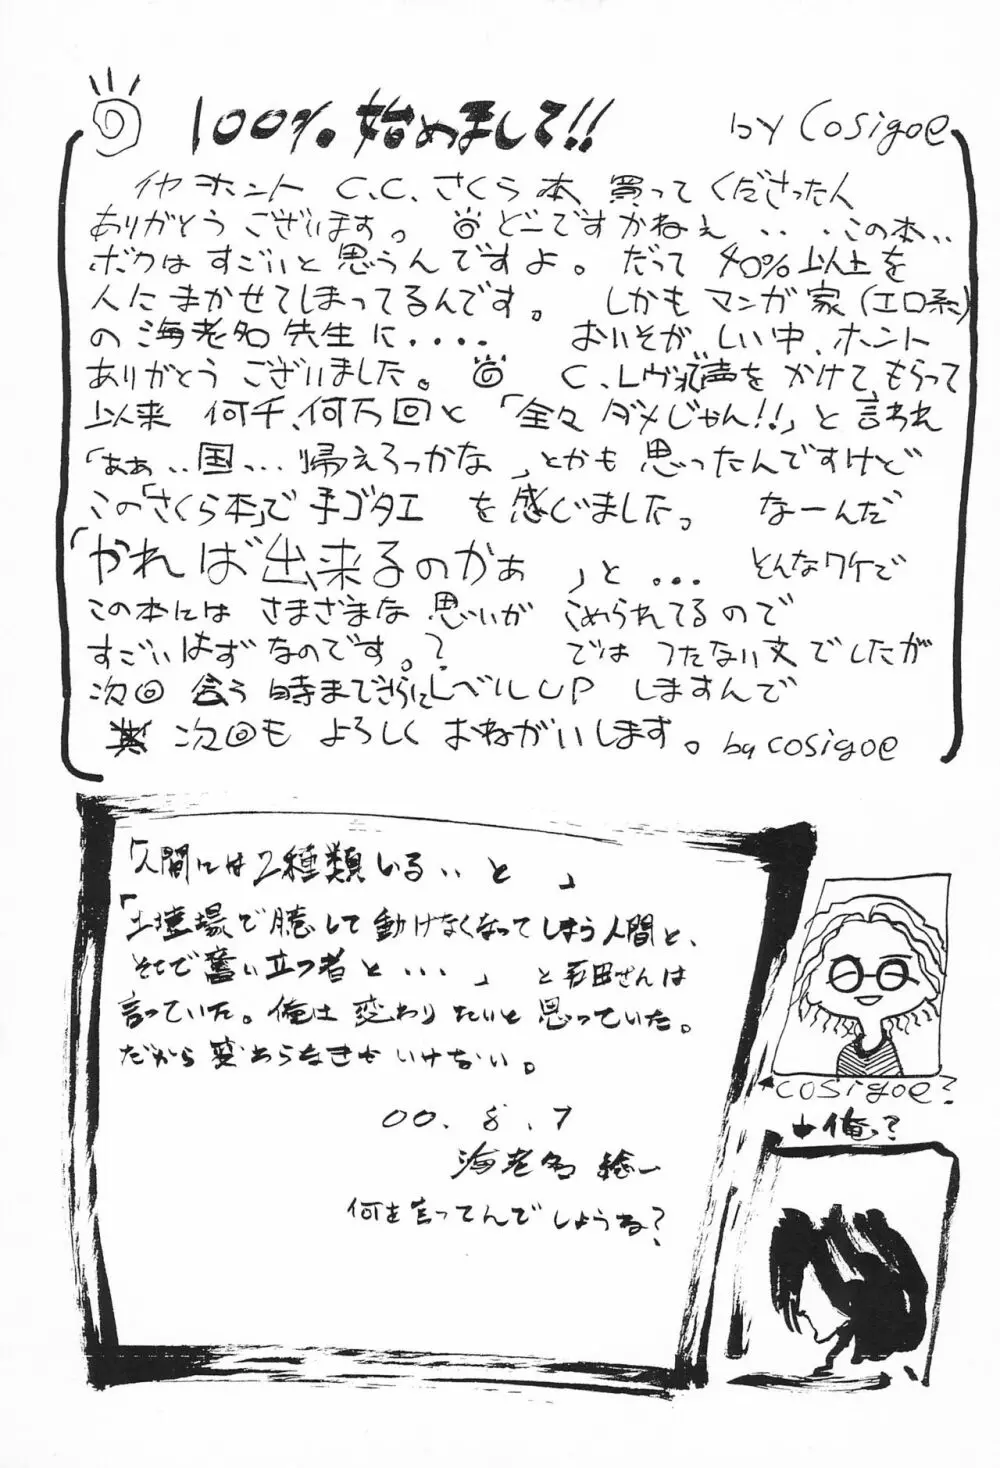 100%始めまして!! by Cosigoe
イヤホント C.C.さくら本 買ってくださった人
ありがとうございます。 どこですかねぇ...この本..
ボクはすごいと思うんですよ。だって40%以上を
人にまかせてしまってるんです。しかもマンガ家(エロ系)
の海老名先生に.... おいそがしい中、ホント
ありがとうございました。 C.Lヴ 声をかけてもらって
以来 何千、何万回と「全々ダメじゃん!!」と言われ
「ああ..国... 帰えろっかな」とかも思ったんですけど
この「さくら本」で手ゴタエを感じました。 なーんだ
「やれば出来るのかぁ」と... そんなワケで
この本には さまざまな思いが こめられてるので
すごいはずなのです。? では つたない文でしたが
次回 会う時までさらにレベルUP しますんで
次回も よろしくおねがいします。by cosigoe
「人間には2種類いる..と」
「土壇場で臆して動けなくなってしまう人間と、
そこで奮い立つ者と...」 と 田さんは
言っていた。俺は変わりたいと思っていた。
だから変わらなきゃいけない。
00.8.7
海老名 一
何を言ってんでしょうね?
cosigoe?
俺?